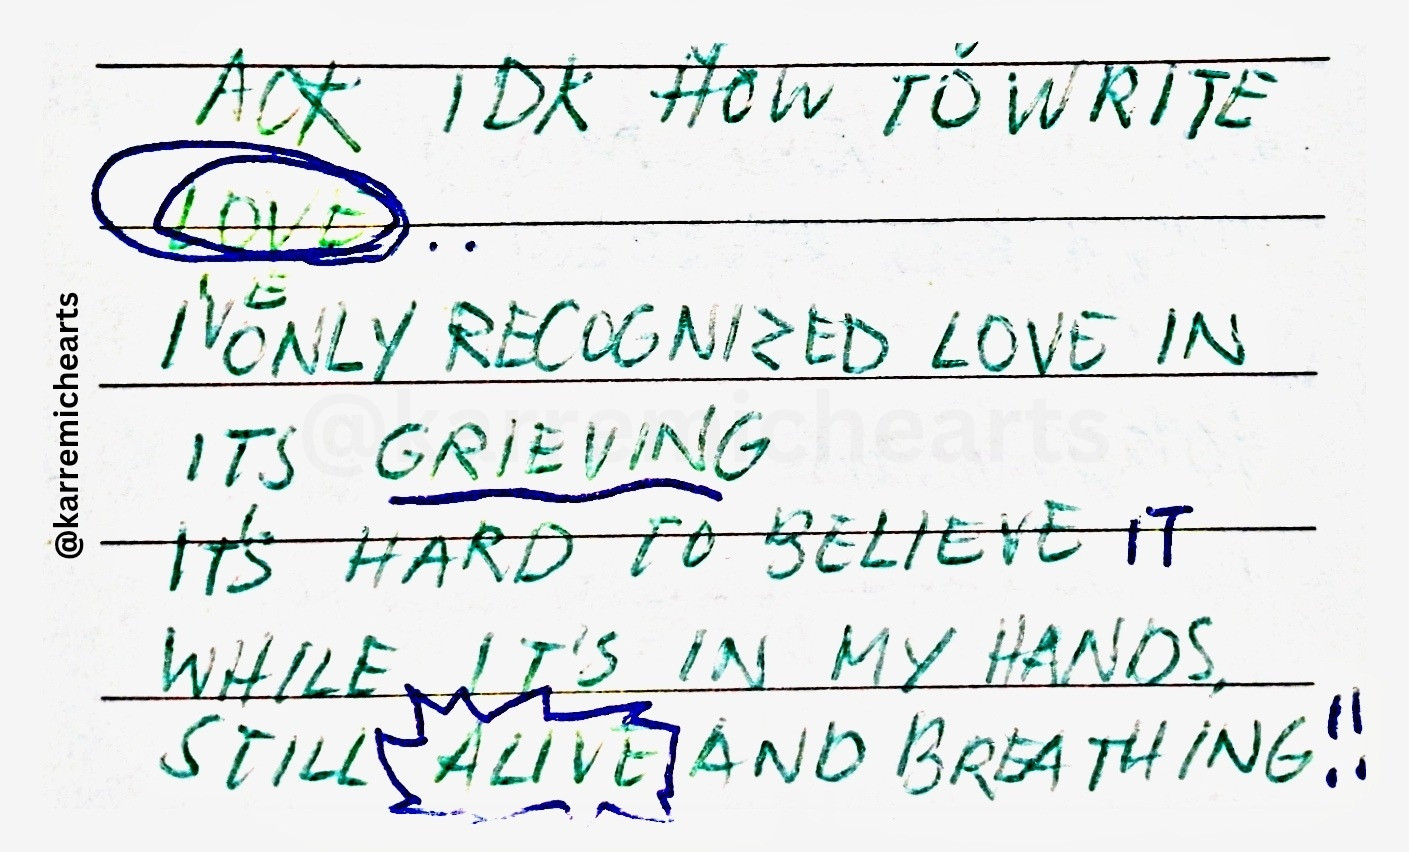 ACK IDK HOW TO WRITE
LOVE..
I'VE ONLY RECOGNIZED LOVE IN
ITS GRIEVING
IT'S HARD TO BELIEVE IT
WHILE IT'S IN MY HANDS,
STILL ALIVE AND BREATHING!!
@karremichearts
@karremichearts